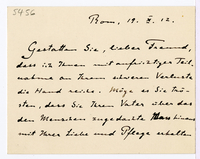 5456
Bonn, 19. X. 12.
Gestatten Sie, lieber Freund,
dass ich Ihnen mit aufrichtiger Teil-
nahme an Ihrem schweren Verluste
die Hand reiche. Möge es Sie trö-
sten, dass Sie Ihrem Vater über das
den Menschen zugedachte Mass hinaus
mit Ihrer Liebe und Pflege erhalten